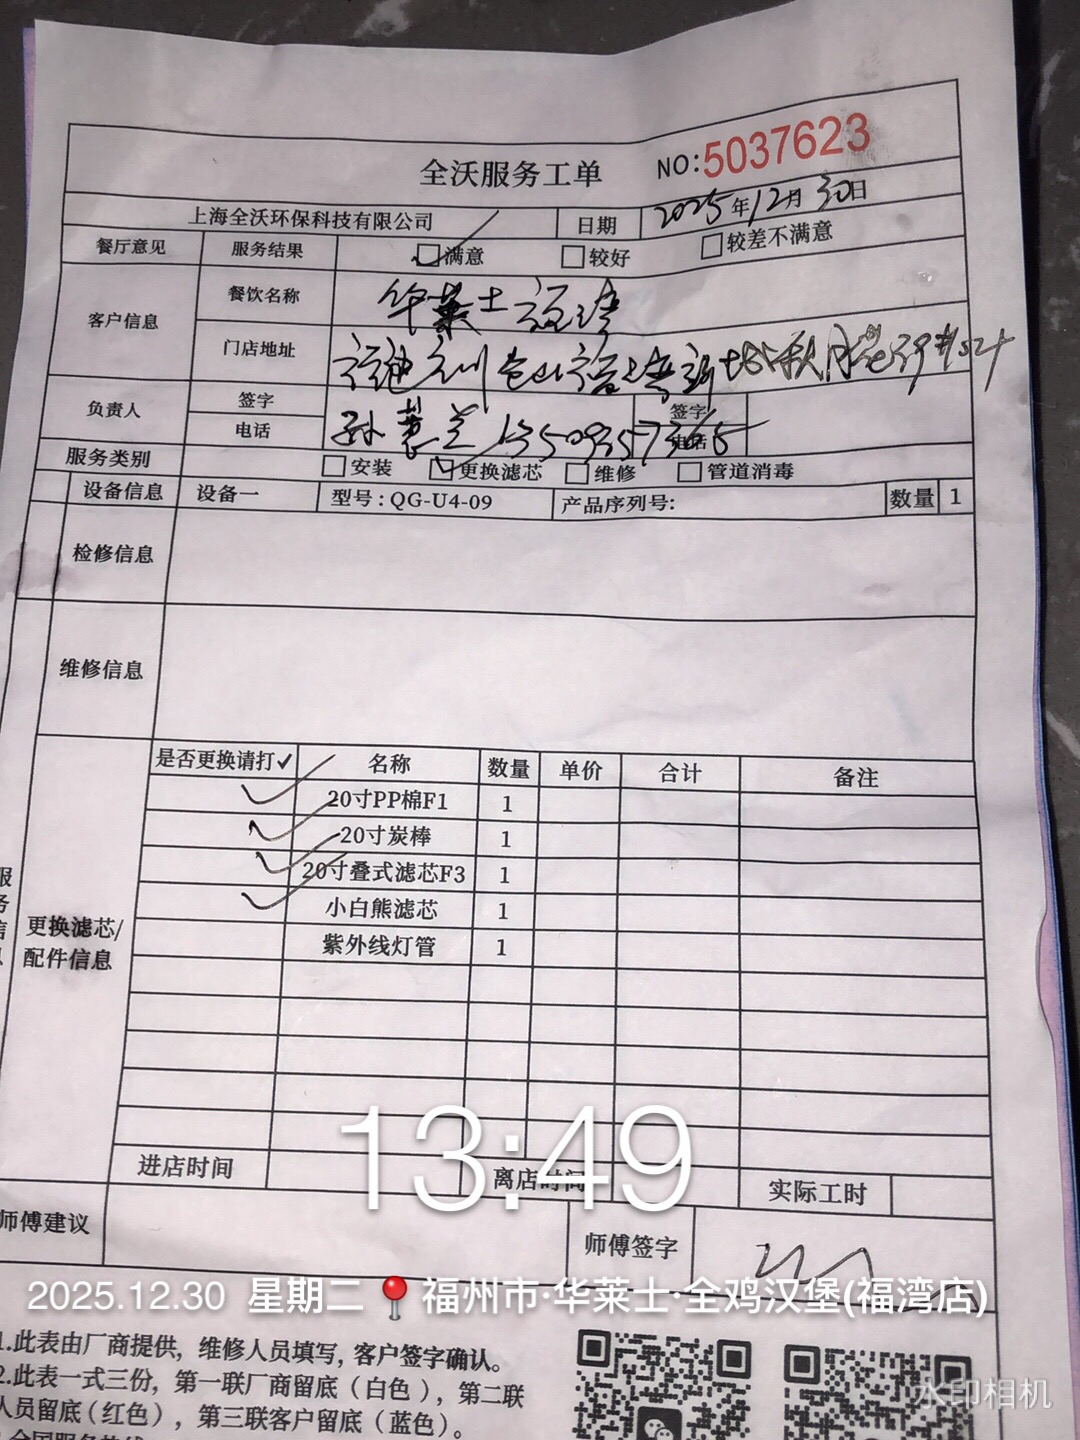 全沃服务工单 NO:5037623
上海全沃环保科技有限公司 日期 2025年12月30日
餐厅意见 服务结果 满意 较好 较差不满意
客户信息 餐饮名称 华莱士福湾
门店地址 福建 福州仓山福湾
负责人 签字 签字
电话 电话
服务类别 安装 更换滤芯 维修 管道消毒
设备信息 设备一 型号:QG-U4-09 产品序列号: 数量 1
检修信息
维修信息
是否更换请打✓ 名称 数量 单价 合计 备注
20寸PP棉F1 1
20寸炭棒 1
20寸叠式滤芯F3 1
更换滤芯/ 小白熊滤芯 1
配件信息 紫外线灯管 1
13:49
进店时间 离店时间 实际工时
师傅建议 师傅签字
2025.12.30 星期二 福州市·华莱士·全鸡汉堡(福湾店)
1.此表由厂商提供,维修人员填写,客户签字确认。
2.此表一式三份,第一联厂商留底(白色),第二联
人员留底(红色),第三联客户留底(蓝色)。
水印相机